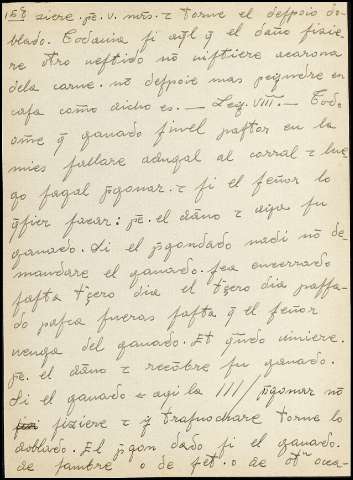 158 ziere. p̃e. v. mr̃s. τ torne el despojo do-
blado. Todauia si aq̃l q̃ el daño fizie-
re otro uestido nõ uistiere acarona
dela carne. nõ despoje mas peyndre en
casa como dicho es. — Ley. VIII. — Tod
om̃e q̃ ganado sinel pastor en la
mies fallare adugal al corral τ lue-
go fagal p̃gonar. τ si el señor lo
q̃sier sacar: p̃e. el dãno τ aya su
ganado. Si el p̃gondado nadi nõ de-
mandare el ganado. sea encerrado
fasta t̃çero dia el t̃çero dia passa-
do pasca fueras fasta q̃ el señor
uenga del ganado. Et q̃ndo uiniere.
p̃e. el dãno τ recõbre su ganado.
Si el ganado aqi la III/ p̃gonar nõ
fiziere τ q̃ trasnochare torne lo
doblado. El p̃gon dado si el ganado.
de fambre o de set. o de ot̃ ocea-